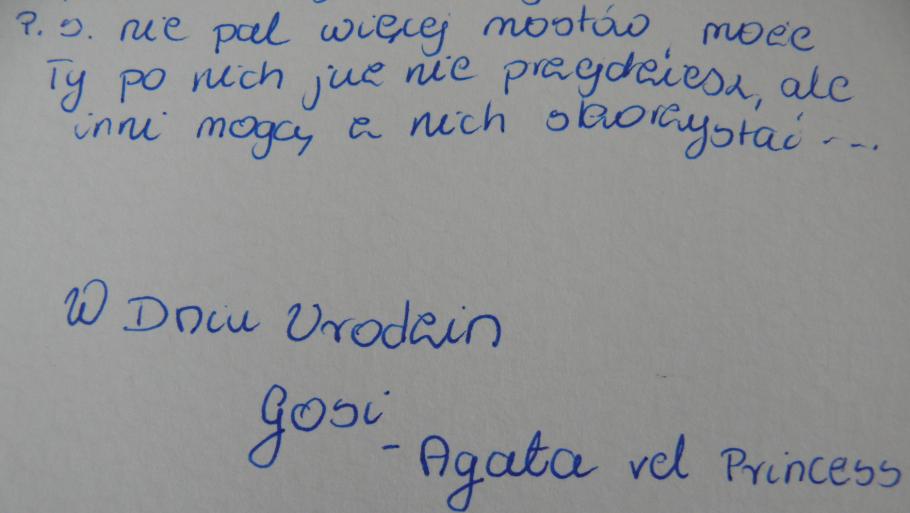 P.S. nie pal więcej mostów, może
Ty po nich już nie przejdziesz, ale
inni mogą z nich skorzystać ...
W Dniu Urodzin
Gosi
- Agata vel Princess